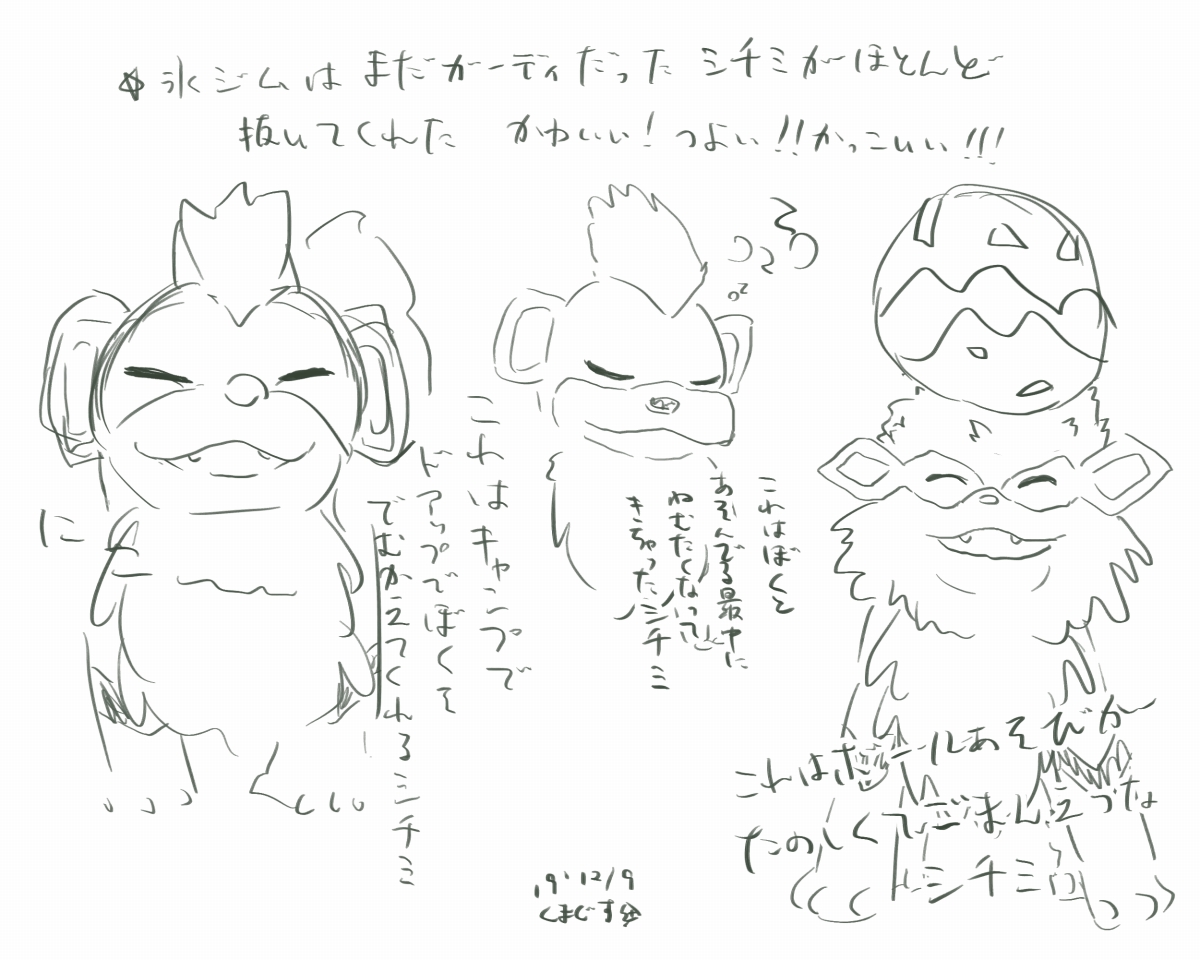 ☆氷ジムはまだガーディだったシチミがほとんど
抜いてくれた かわいい！つよい！！かっこいい！！！
に
これはキャンプで
ドアップでぼくを
でむかえてくれるシチミ
これはぼくと
あそんでる最中に
ねむたくなって
きちゃったシチミ
これはボールあそびが
たのしくてごまんえつな
シチミ
19'12/9
くまじす☆